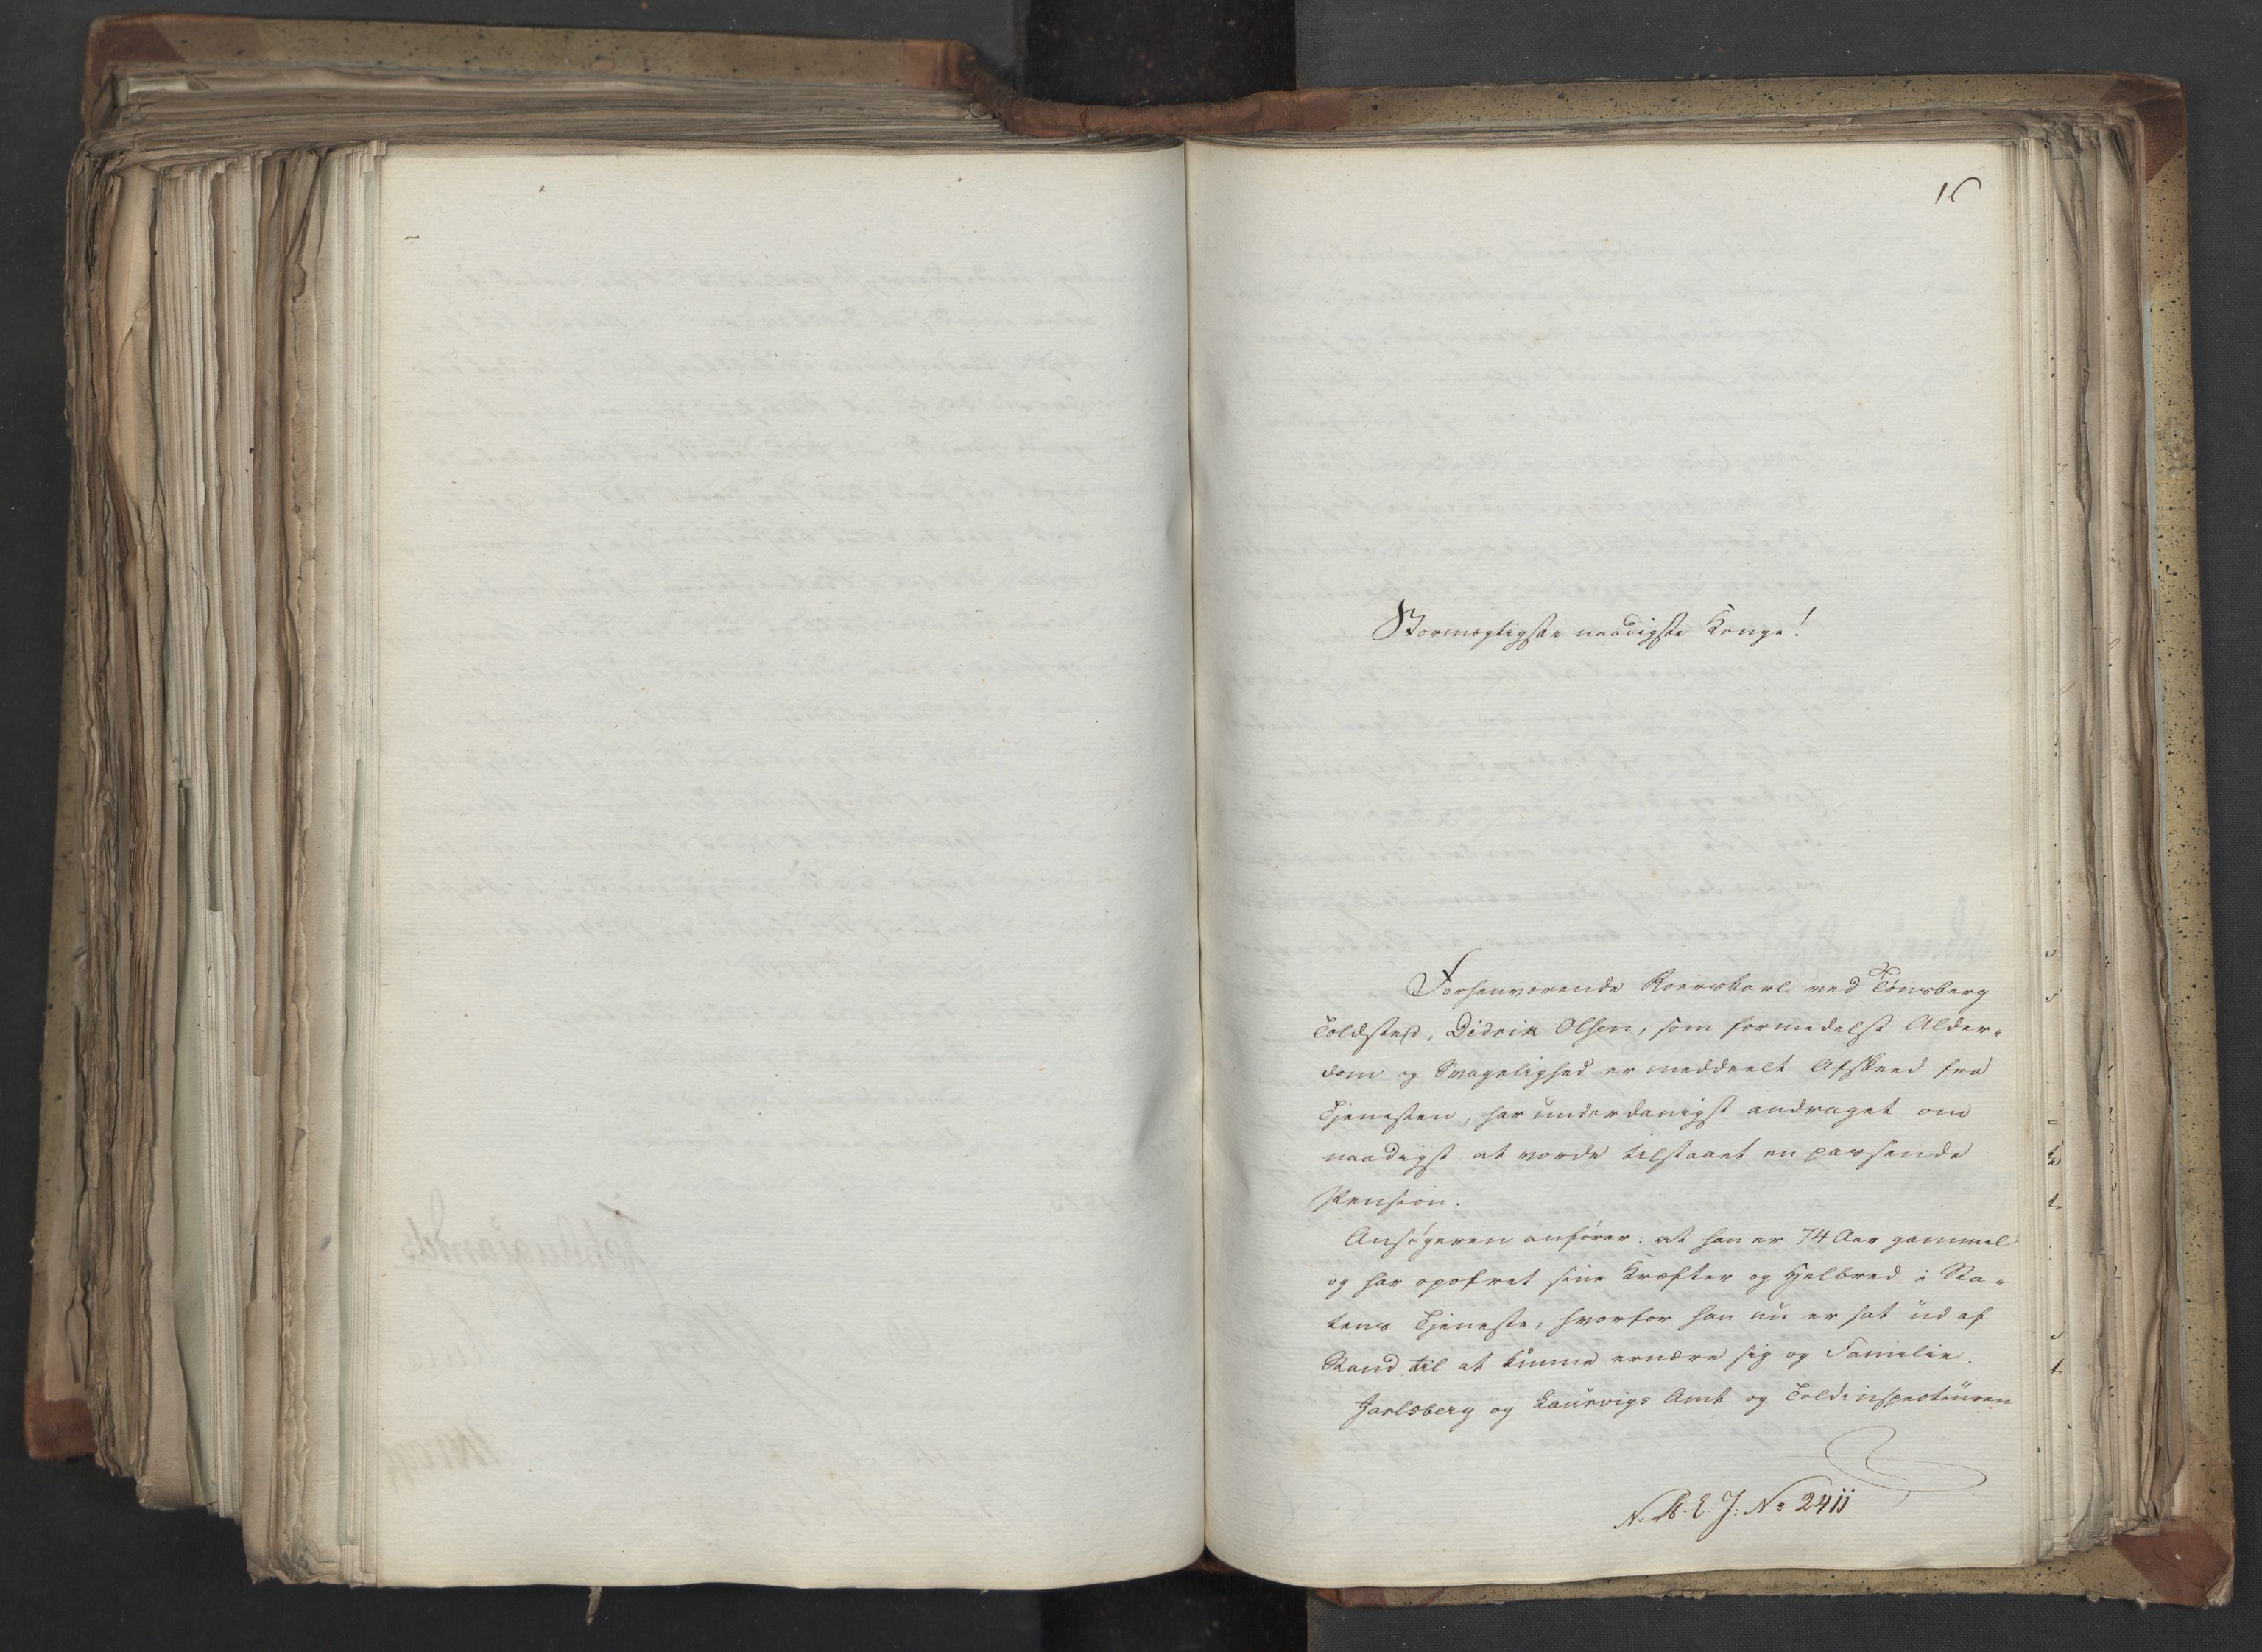 16
Stormægtigste naadigste Konge!
Forhenværende Roerskarl ved Tönsberg
Toldsted, Didrik Olsen, som formedelst Alder-
dom og Svagelighed er meddeelt Afskeed fra
Tjenesten, har underdanigst andraget om
naadigst at vorde tilstaaet en passende
Pension.
Ansögeren anförer: at han er 74 Aar gammel
og har opofret sine Kræfter og Helbred i Sta-
tens Tjeneste, hvorfor han nu er sat ud af
Stand til at kunne ernære sig og Familie.
Jarlsberg og Laurvigs Amt og Toldinspecteuren
J: No 2411